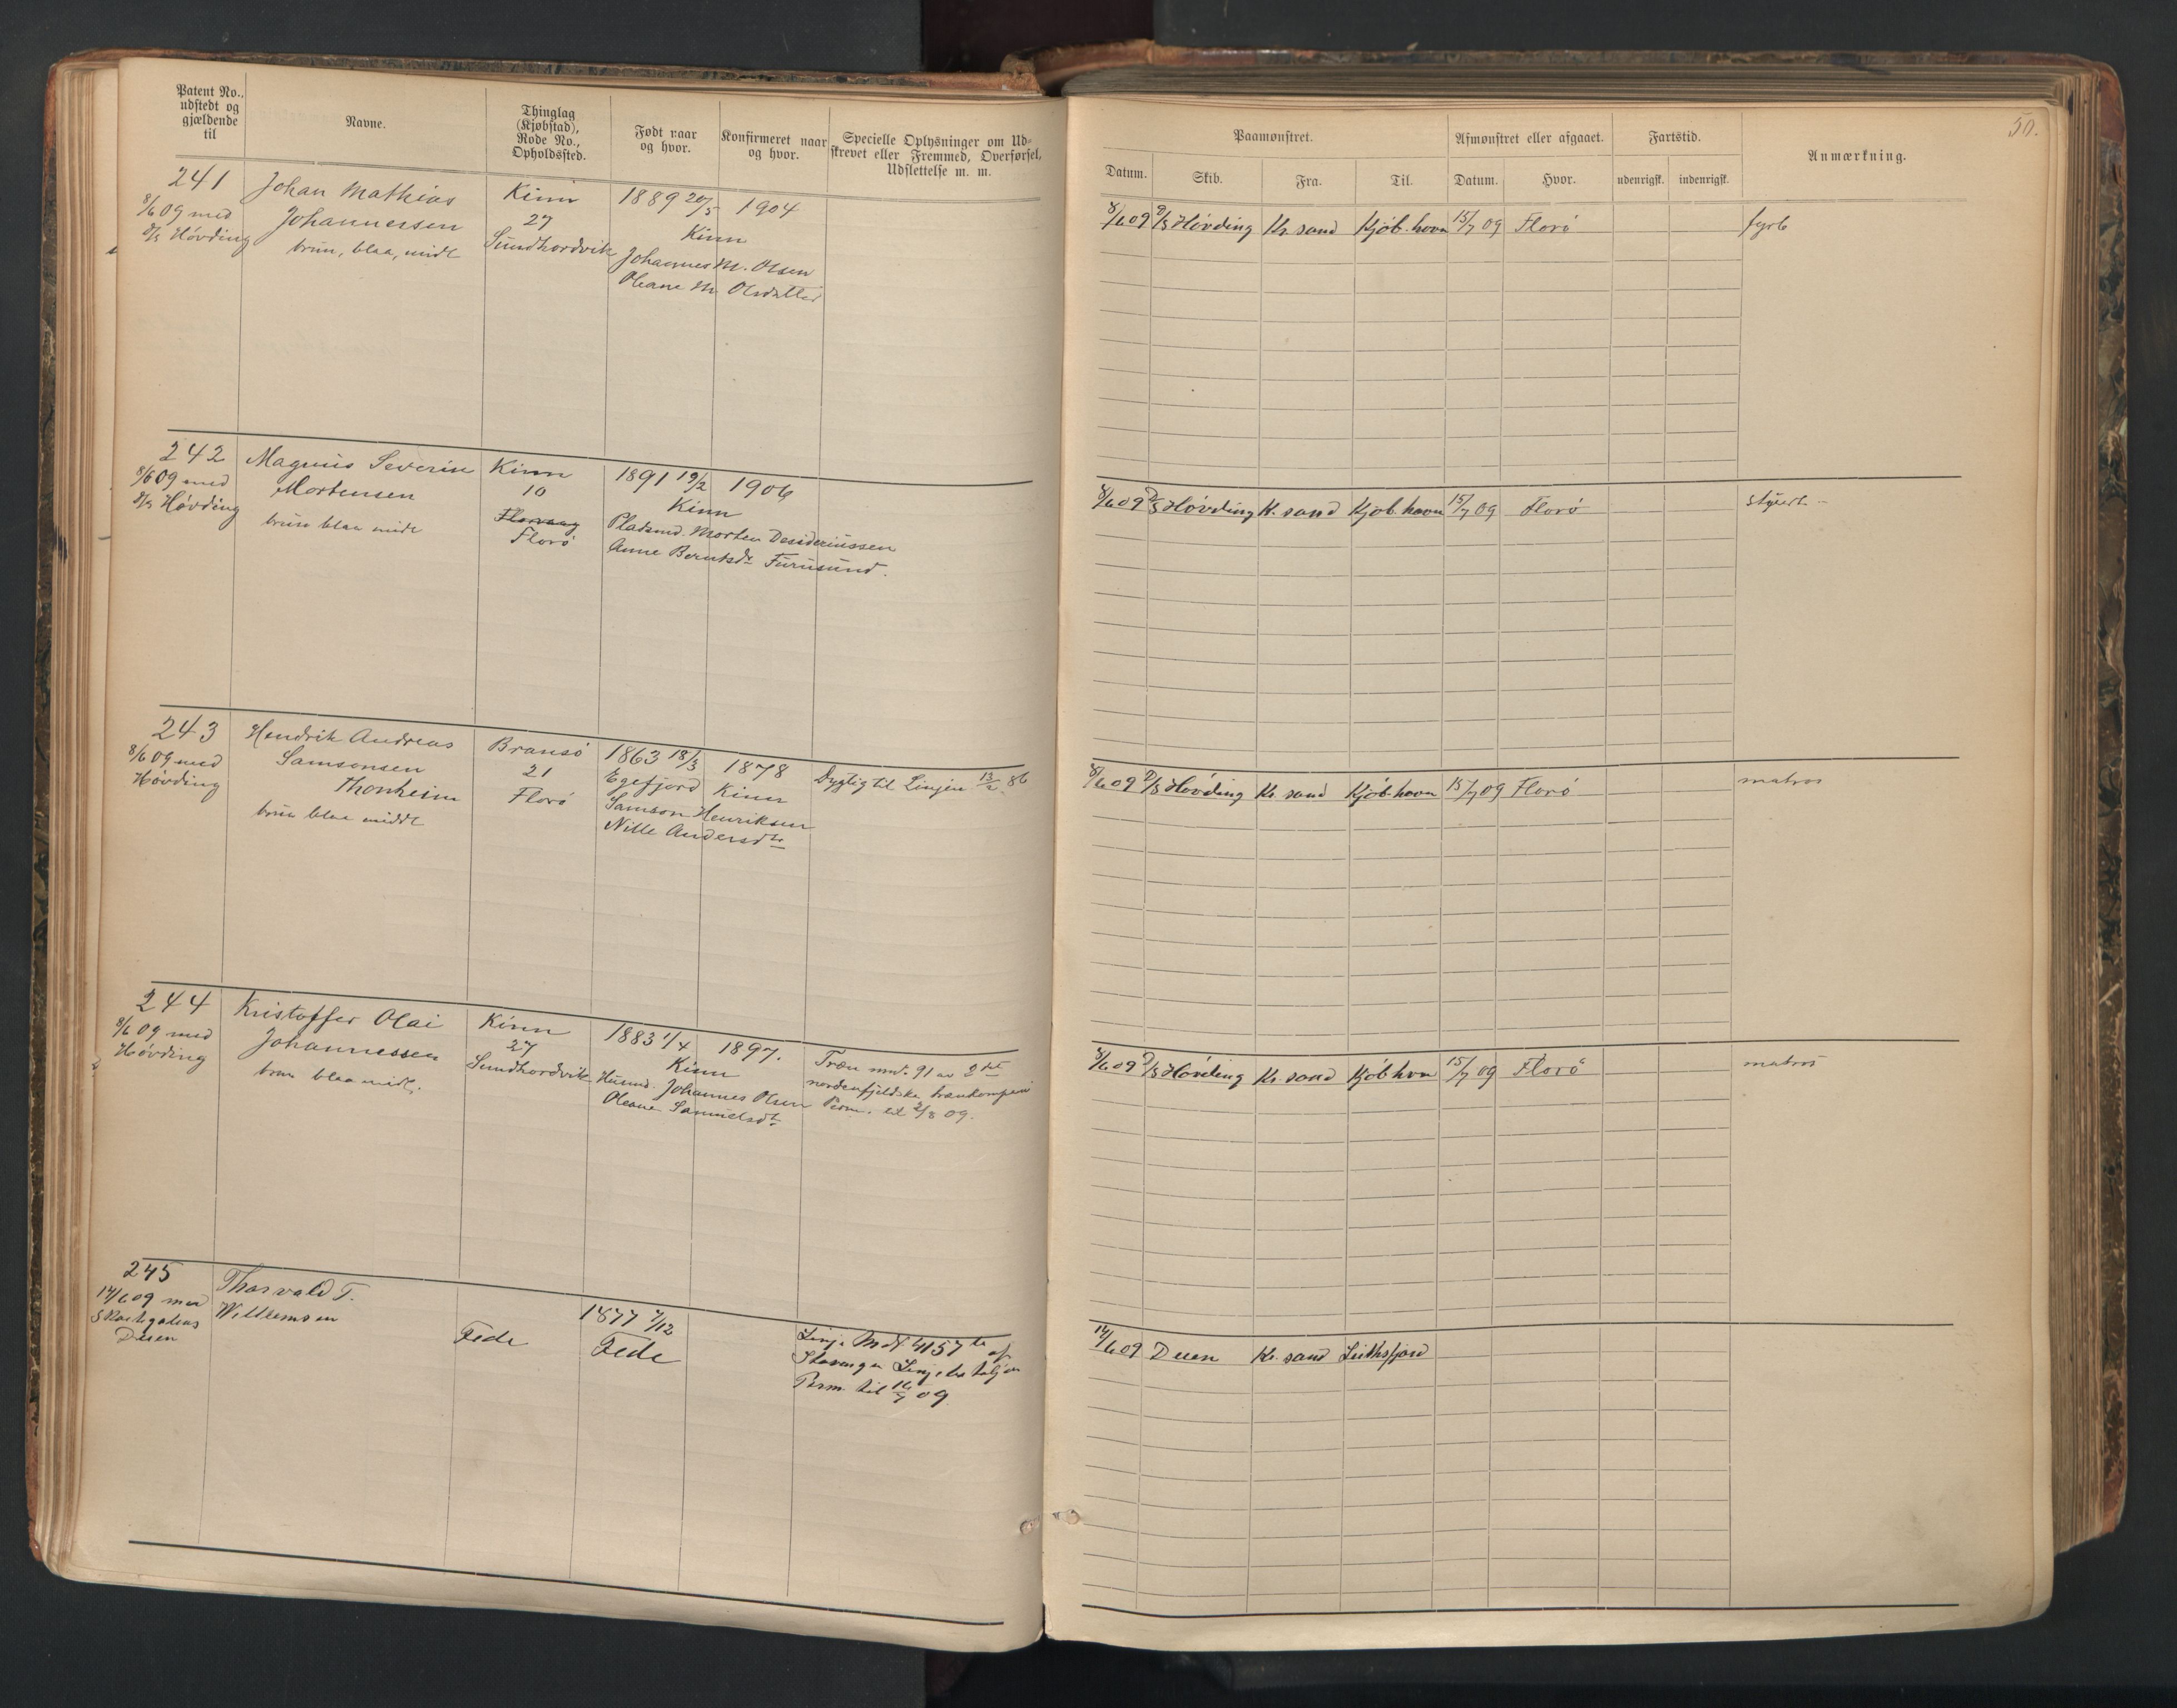 Patent No.,
udstedt og
gjældende
til
Navne.
Thinglag
(Kjøbstad),
Rode No.,
Opholdssted.
Født naar
og hvor.
Konfirmeret naar
og hvor.
Specielle Oplysninger om Ud-
skrevet eller Fremmed, Overførsel,
Udslettelse m. m.
241
8/6 09 med
D/S Høvding
Johan Mathias
Johannessen
brun, blaa, midl
Kinn
27
Sundhordvik
1889 20/5 1904
Kinn
Johannes M. Olsen
Oleane M Olsdatter
242
8/6 09 med
D/S Høvding
Magnus Severin
Mortensen
brun blaa midl
Kinn
10
Florvaag
Florø
1891 19/2 1906
Kinn
Pladsmd. Morten Desideriussen
Anne Berntsdr Furusund.
243
8/6 09 med
Høvding
Hendrik Andreas
Samsonsen
Thonheim
brun blaa middl
Bransø
21
Florø
1863 18/3 1878
Egefjord Kinn
Samson Henriksen
Nille Andersdtr
Dygtig til Linjen 13/2 86
244
8/6 09 med
Høvding
Kristoffer Olai
Johannessen
brun blaa midl.
Kinn
27
Sundhordvik
1883 1/4 1897.
Kinn
Husmd. Johannes Olsen
Oleane Samuelsdtr
Træn mnd. 91 av 2det
nordenfjeldske trænkompani
Perm. til 2/8 09.
245
14/6 09 med
Duen
Thorvald T.
Willemsen
Fede
1877 7/12
Fede
Linje Mdsk 4157 te af
Stavanger Linjebataljon
Perm. til 16/7 09.
50.
Paamønstret.
Afmønstret eller afgaaet.
Fartstid.
Anmærkning.
Datum.
Skib.
Fra.
Til.
Datum.
Hvor.
udenrigsk.
indenrigsk.
8/6 09 D/S Høvding Kr. sand Kjøb. havn 15/7 09 Florø fyrb
8/6 09 D/S Høvding K. sand Kjøb. havn 15/7 09 Florø
8/6 09 D/S Høvding Kr. sand Kjøb. havn 15/7 09 Florø matros
8/6 09 D/S Høvding Kr. sand Kjøb hvn 15/7 09 Florø matros
14/6 09 Duen Kr. sand